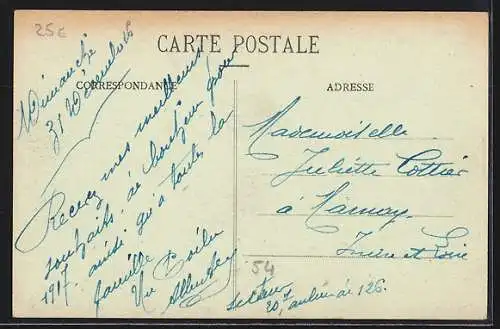 25€
CARTE POSTALE
CORRESPONDANCE
ADRESSE
Dimanche
31 Décembre
Recevez mes meilleurs
souhaits de bonheur pour
1917. ainsi qu'a toute la
famille
Un Poilu
Mademoiselle
Juliette Cottier
à Marnay
Indre et Loire
54
Secteur